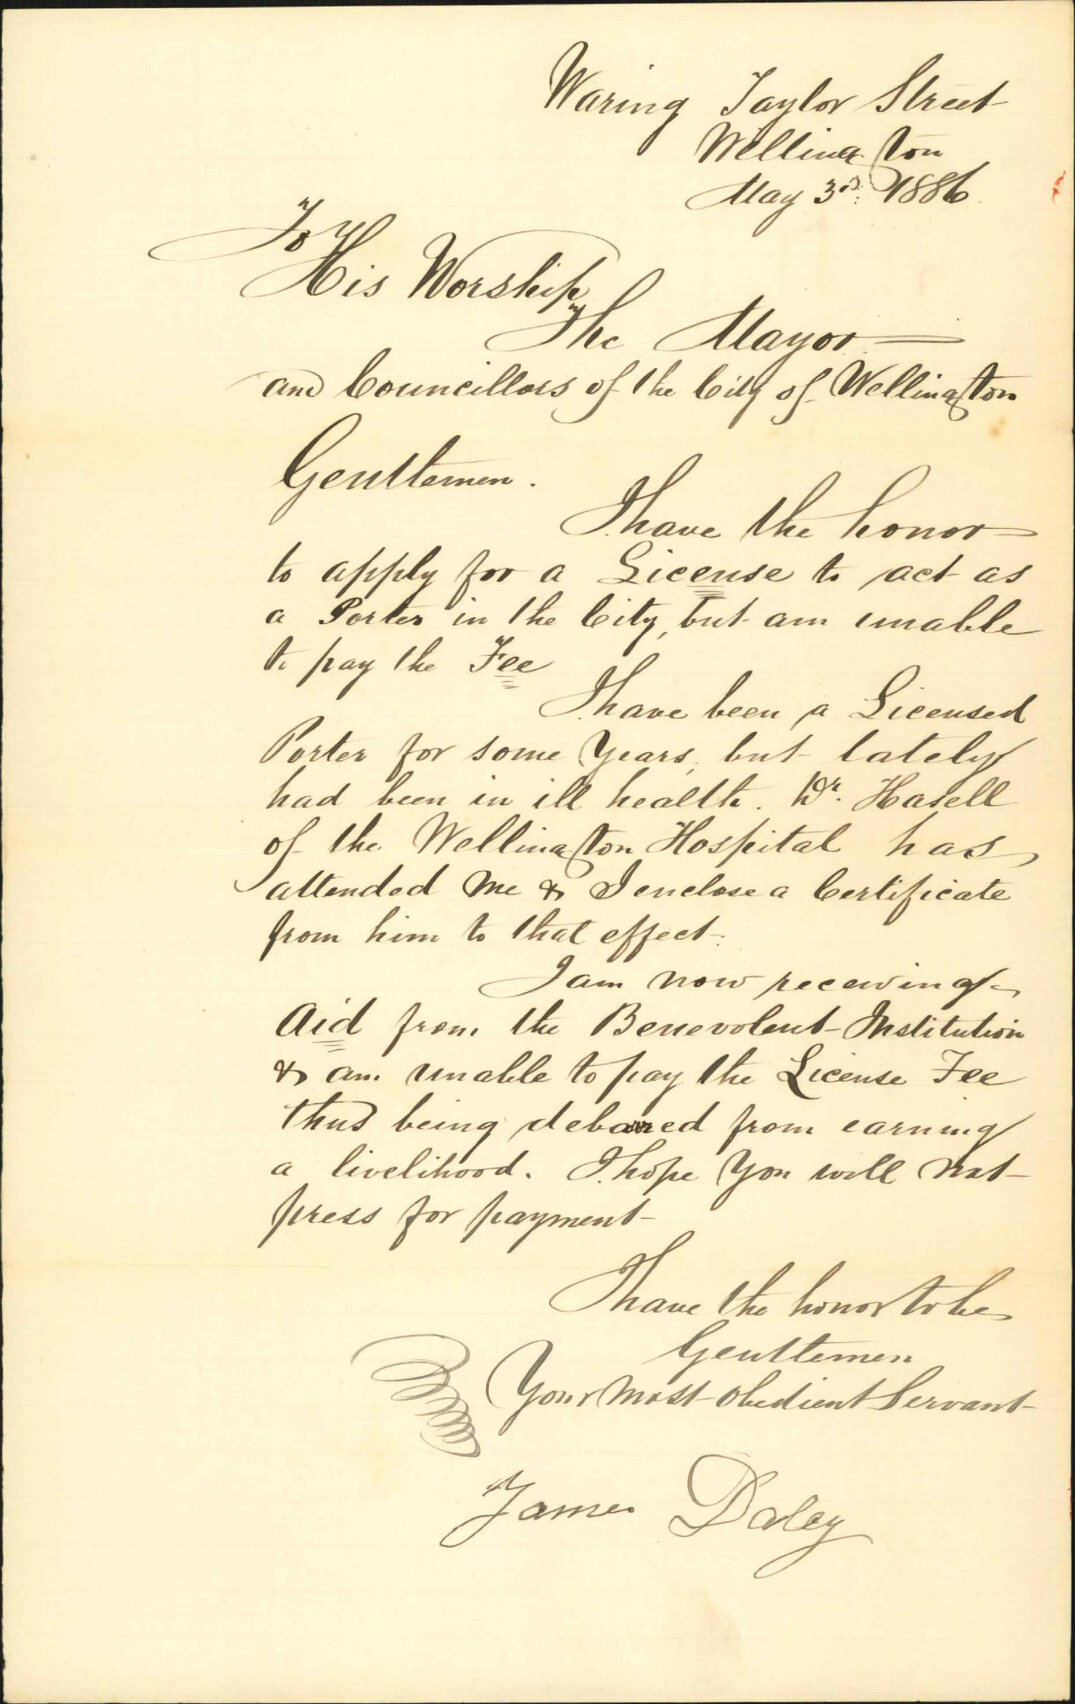 Waring Taylor Street
Wellington
May 3rd. 1886
To
His Worship
The Mayor
and Councillors of the City of Wellington
Gentlemen.
I have the honor
to apply for a License to act as
a Porter in the City, but am unable
to pay the Fee
I have been a Licensed
Porter for some Years, but lately
had been in ill health. Dr. Hasell
of the Wellington Hospital has
attended me & I enclose a Certificate
from him to that effect.
I am now receiving
Aid from the Benevolent Institution
& am unable to pay the License Fee
thus being debarred from earning
a livelihood. I hope You will not
press for payment
I have the honor to be
Gentlemen
Your most obedient Servant
James Daley